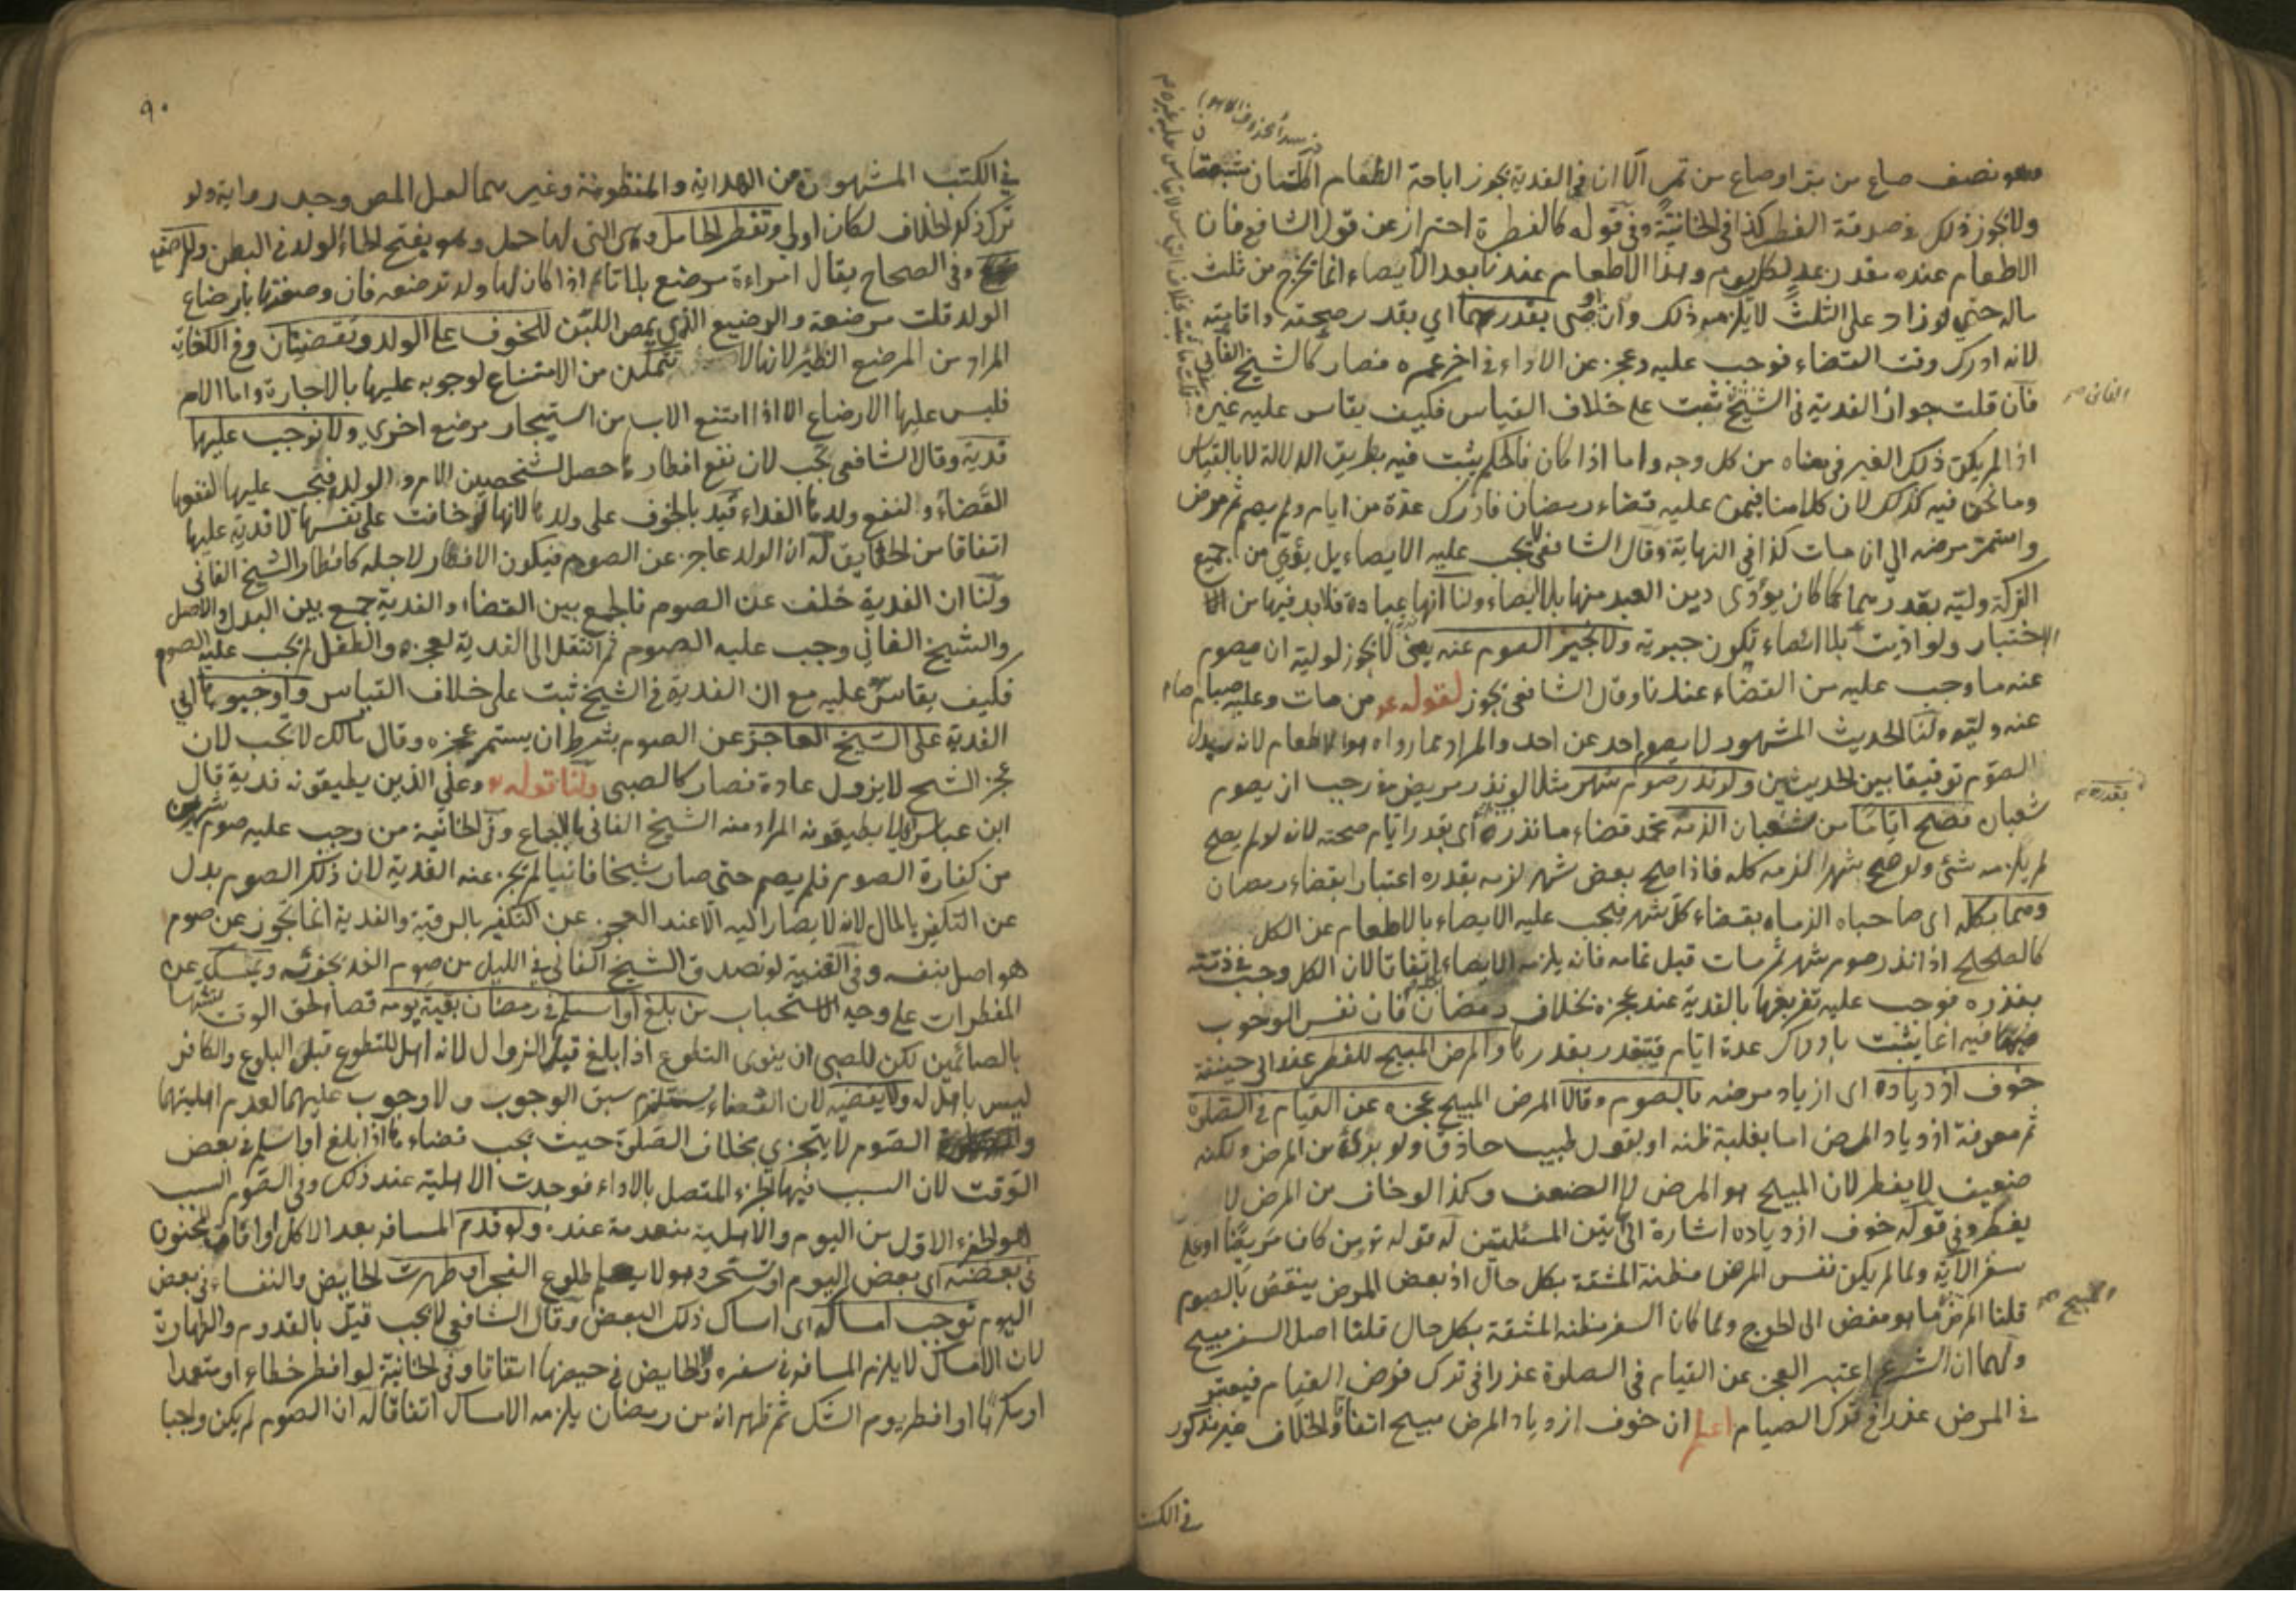 وهو نصف صاع من بر او صاع من تمر الا ان في الفدية يجوز اباحة الطعام اكلتان مشبعتان
ولا يجوز ذلك في صدقة الفطر كذا في الخانية وفي قوله كالفطرة احتراز عن قول الشافعي فان
الاطعام عنده مقدر بمد لكل يوم وهذا الاطعام عندنا بعد الايصاء انما يخرج من ثلث
ماله حتى لو زاد على الثلث لا يلزمه ذلك وان صح بقدرهما اي بقدر صحته واقامته
لانه ادرك وقت القضاء فوجب عليه وعجز عن الاداء في اخر عمره فصار كالشيخ الفاني
فان قلت جواز الفدية في الشيخ ثبت على خلاف القياس فكيف يقاس عليه غيره
الفاني صح
اذا لم يكن ذلك الغير في معناه من كل وجه واما اذا كان فالحكم يثبت فيه بطريق الدلالة لا بالقياس
وما نحن فيه كذلك لان كلامنا فيمن عليه قضاء رمضان فادرك عدة من ايام ولم يصم ثم مرض
واستمر مرضه الى ان مات كذا في النهاية وقال الشافعي لا يجب عليه الايصاء بل يؤدي من جميع
التركة وليه بقدرهما كما كان يؤدي دين العبد منها بلا ايصاء ولنا انها عبادة فلا بد فيها من
الاختيار ولو اديت بلا ايصاء تكون جبرية ولا يجيز الصوم عنه يعني لا يجوز لوليه ان يصوم
عنه ما وجب عليه من القضاء عندنا وقال الشافعي يجوز لقوله عم من مات وعليه صيام صام
عنه وليه ولنا الحديث المشهور لا يصوم احد عن احد والمراد مما رواه هو الاطعام لانه بدل
الصوم توفيقا بين الحديثين ولو نذر صوم شهر مثلا لو نذر مريض في رجب ان يصوم
بقدره صح
شعبان فصح اياما من شعبان الزمه محمد قضاء ما نذره اي بقدر ايام صحته لانه لو لم يصح
لم يلزمه شئ ولو صح شهرا لزمه كله فاذا صح بعض شهر لزمه بقدره اعتبارا بقضاء رمضان
وهما بكله اي صاحباه الزماه بقضاء كل شهر فيجب عليه الايصاء بالاطعام عن الكل
كالصحيح اذا نذر صوم شهر ثم مات قبل تمامه فانه يلزمه الايصاء اتفاقا لان الكل وجب في ذمته
بنذره فوجب عليه تفريغها بالفدية عند عجزه بخلاف رمضان فان نفس الوجوب
فيه انما يثبت بادراك عدة ايام فيتقدر بقدرها والمرض المبيح للفطر عند ابي حنيفة
خوف ازدياده اي ازدياد مرضه بالصوم وقالا المرض المبيح عجزه عن القيام في الصلوة
ثم معرفة ازدياد المرض اما بغلبة ظنه او بقول طبيب حاذق ولو برئ من المرض ولكنه
ضعيف لا يفطر لان المبيح هو المرض لا الضعف وكذا لو خاف من المرض لا
يفطر وفي قوله خوف ازدياده اشارة الى تين المسئلتين له قوله تع من كان مريضا او على
سفر الاية ولما لم يكن نفس المرض مظنة المشقة بكل حال اذ بعض المرض ينقص بالصوم
المبيح صح
قلنا المرض ما هو مفض الى الحرج ولما كان السفر مظنة المشقة بكل حال قلنا اصل السفر مبيح
ولهما ان الشرع اعتبر العجز عن القيام في الصلوة عذرا في ترك فرض القيام فيعتبر
في المرض عذرا في ترك الصيام اعلم ان خوف ازدياد المرض مبيح اتفاقا والخلاف غير مذكور
في الكتب
٩٠
في الكتب المشهورة من الهداية والمنظومة وغيرهما لعل المص وجد رواية ولو
ترك ذكر الخلاف لكان اولى وتفطر الحامل وهي التي لها حمل وهو بفتح الحاء الولد في البطن والمرضع
وفي الصحاح يقال امراءة مرضع بلا تاء اذا كان لها ولد ترضعه فان وصفتها بارضاع
الولد قلت مرضعة والرضيع الذي يمص اللبن للخوف على الولد وتقضيان وفي الكفاية
المراد من المرضع الظئر لانها لا تتمكن من الامتناع لوجوبه عليها بالاجارة واما الام
فليس عليها الارضاع الا اذا امتنع الاب من استيجار مرضع اخرى ولا نوجب عليها
فدية وقال الشافعي يجب لان نفع افطارها حصل لشخصين الام والولد فيجب عليها لنفعها
القضاء ولنفع ولدها الفداء قيد بالخوف على ولدها لانها لو خافت على نفسها لا فدية عليها
اتفاقا من الحقايق له ان الولد عاجز عن الصوم فيكون الافطار لاجله كافطار الشيخ الفاني
ولنا ان الفدية خلف عن الصوم فالجمع بين القضاء والفدية جمع بين البدل والاصل
والشيخ الفاني وجب عليه الصوم ثم انتقل الى الفدية لعجزه والطفل لم يجب عليه الصوم
فكيف يقاس عليه مع ان الفدية في الشيخ ثبت على خلاف القياس واوجبوها اي
الفدية على الشيخ العاجز عن الصوم بشرط ان يستمر عجزه وقال مالك لا تجب لان
عجز الشيخ لا يزول عادة فصار كالصبي ولنا قوله تع وعلى الذين يطيقونه فدية قال
ابن عباس اي لا يطيقونه المراد منه الشيخ الفاني بالاجماع وفي الخانية من وجب عليه صوم شهرين
من كفارة الصوم فلم يصم حتى صار شيخا فانيا لم يجز عنه الفدية لان ذلك الصوم بدل
عن التكفير بالمال لانه لا يصار اليه الا عند العجز عن التكفير بالرقبة والفدية انما تجوز عن صوم
هو اصل بنفسه وفي القنية لو تصدق الشيخ الفاني في الليل من صوم الغد يجزئه ويمسك عن
المفطرات على وجه الاستحباب من بلغ او اسلم في رمضان بقية يومه قضاء لحق الوقت تشبها
بالصائمين لكن للصبي ان ينوي التطوع اذا بلغ قبل الزوال لانه اهل للتطوع قبل البلوغ والكافر
ليس باهل له ولا يقضيه لان القضاء يستلزم سبق الوجوب ولا وجوب عليهما لعدم اهليتهما
الصوم لا يتجزي بخلاف الصلوة حيث يجب قضاءها اذا بلغ او اسلم في بعض
الوقت لان السبب فيها الجزء المتصل بالاداء فوجدت الاهلية عند ذلك وفي الصوم السبب
هو الجزء الاول من اليوم والاهلية منعدمة عنده ولو قدم المسافر بعد الاكل او افاق المجنون
في بعضه اي بعض اليوم او تسحر وهو لا يعلم طلوع الفجر او طهرت الحايض والنفساء في بعض
اليوم نوجب امساكه اي امساك ذلك البعض وقال الشافعي لا يجب قيل بالقدوم والطهارة
لان الامساك لا يلزم المسافر في سفره والحايض في حيضها اتفاقا وفي الخانية لو افطر خطاء او متعمدا
او مكرها او افطر يوم الشك ثم ظهر انه من رمضان يلزمه الامساك اتفاقا له ان الصوم لم يكن واجبا